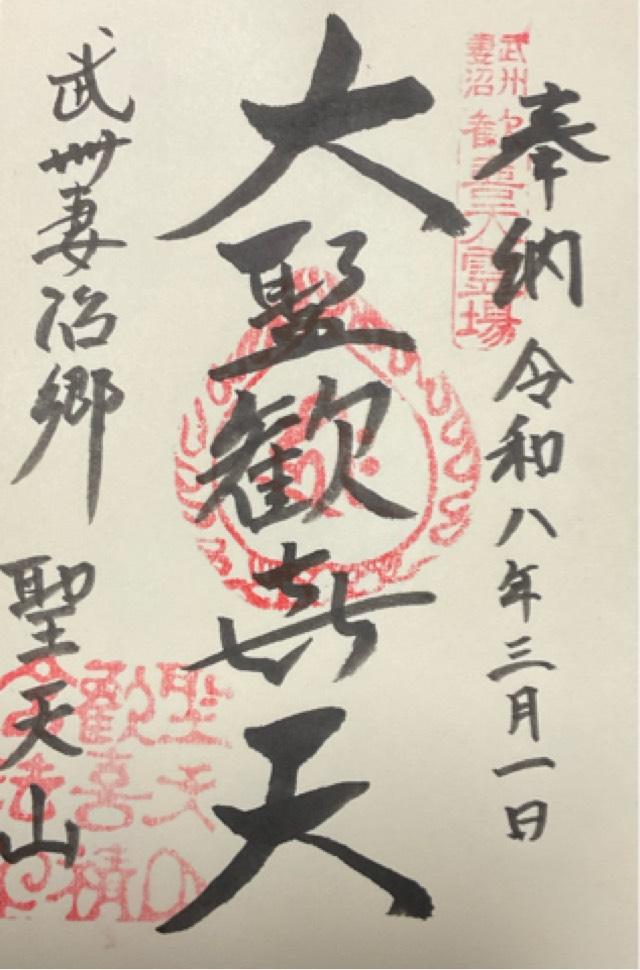 奉納 令和八年三月一日
武州
妻沼
歓喜天霊場
大聖歓㐂天
武州妻沼郷 聖天山
聖天山
歓喜